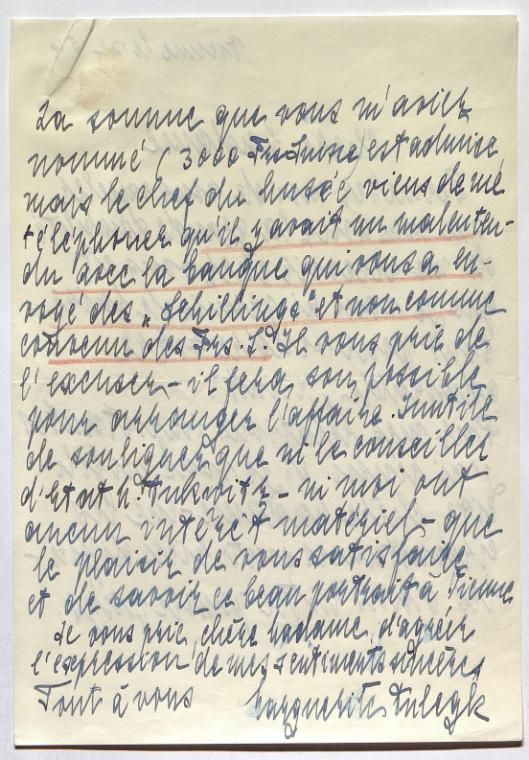 La somme que vous m'aviez
nommé (3000 Frs Suisse) est admise,
mais le chef du Musée viens de me
téléphoner qu'il y avait un malenten-
du avec la banque qui vous a en-
voyé des „Schillings" et non comme
convenu des Frs. S. Il vous prie de
l'excuser – il fera son possible
pour arranger l'affaire. Inutile
de souligner que ni le conseiller
d'Etat h. – ni moi ont
aucun intérêt matériel – que
le plaisir de vous satisfaire
et de savoir ce beau portrait à Vienne
Je vous prie, chère Madame, d'agréer
l'expression de mes sentiments sincères
Tout à vous Marguerite